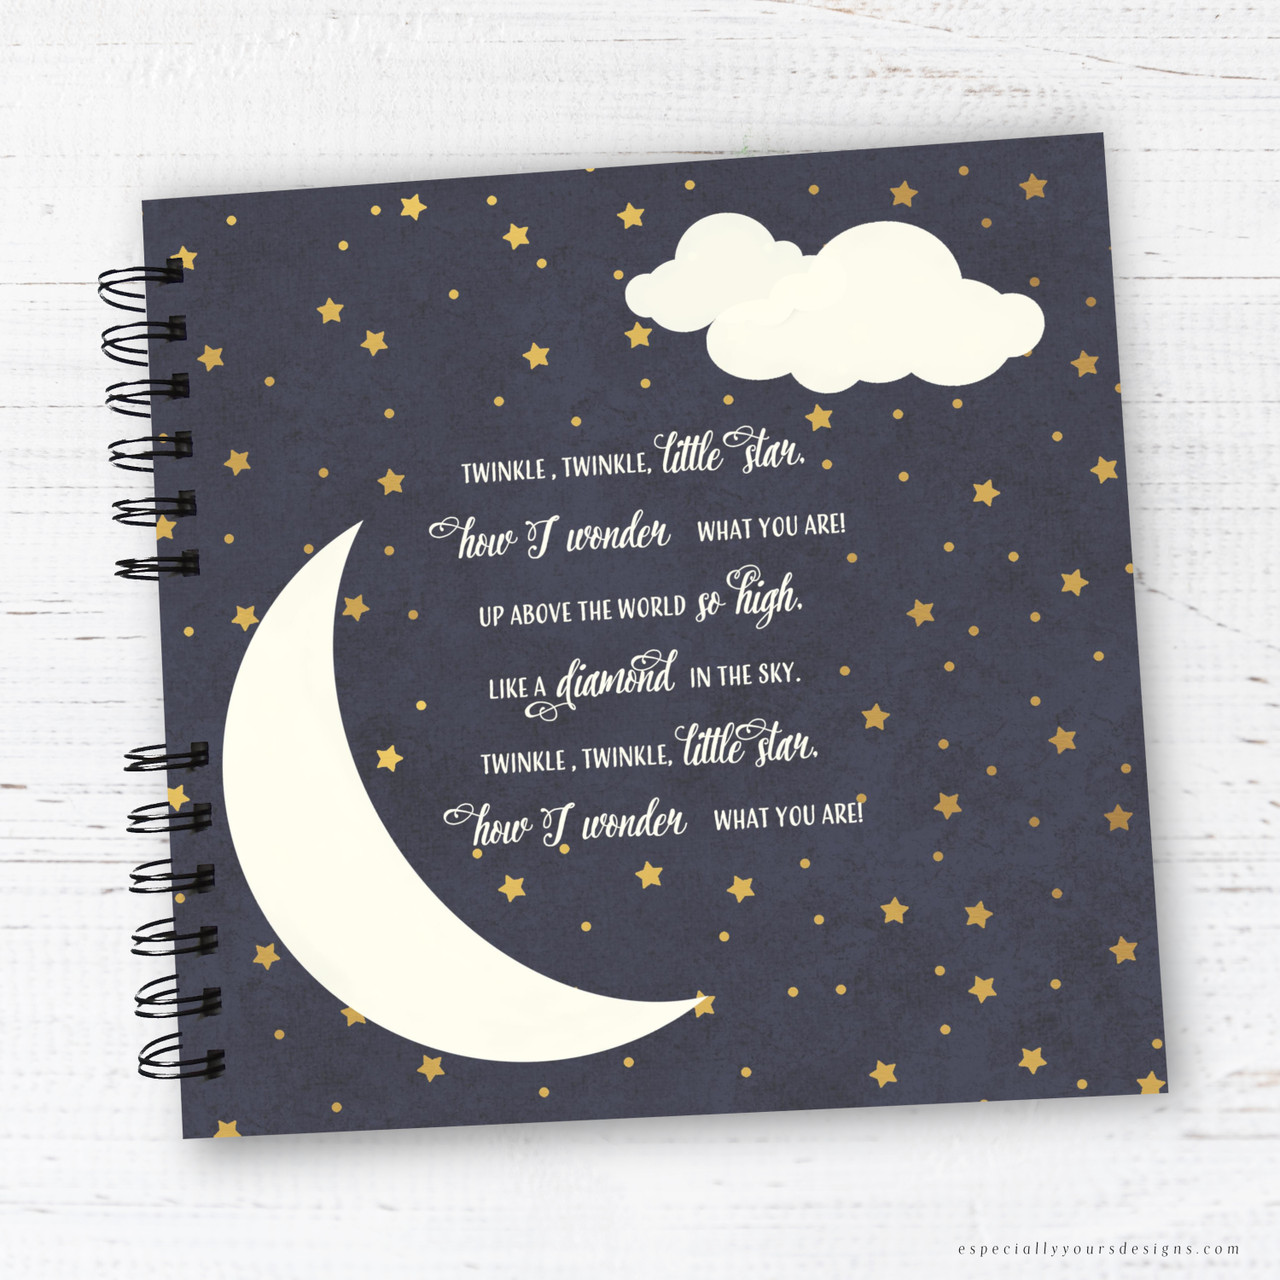 TWINKLE, TWINKLE, little star,
how I wonder WHAT YOU ARE!
UP ABOVE THE WORLD so high,
LIKE A diamond IN THE SKY.
TWINKLE, TWINKLE, little star,
how I wonder WHAT YOU ARE!
especiallyyoursdesigns.com